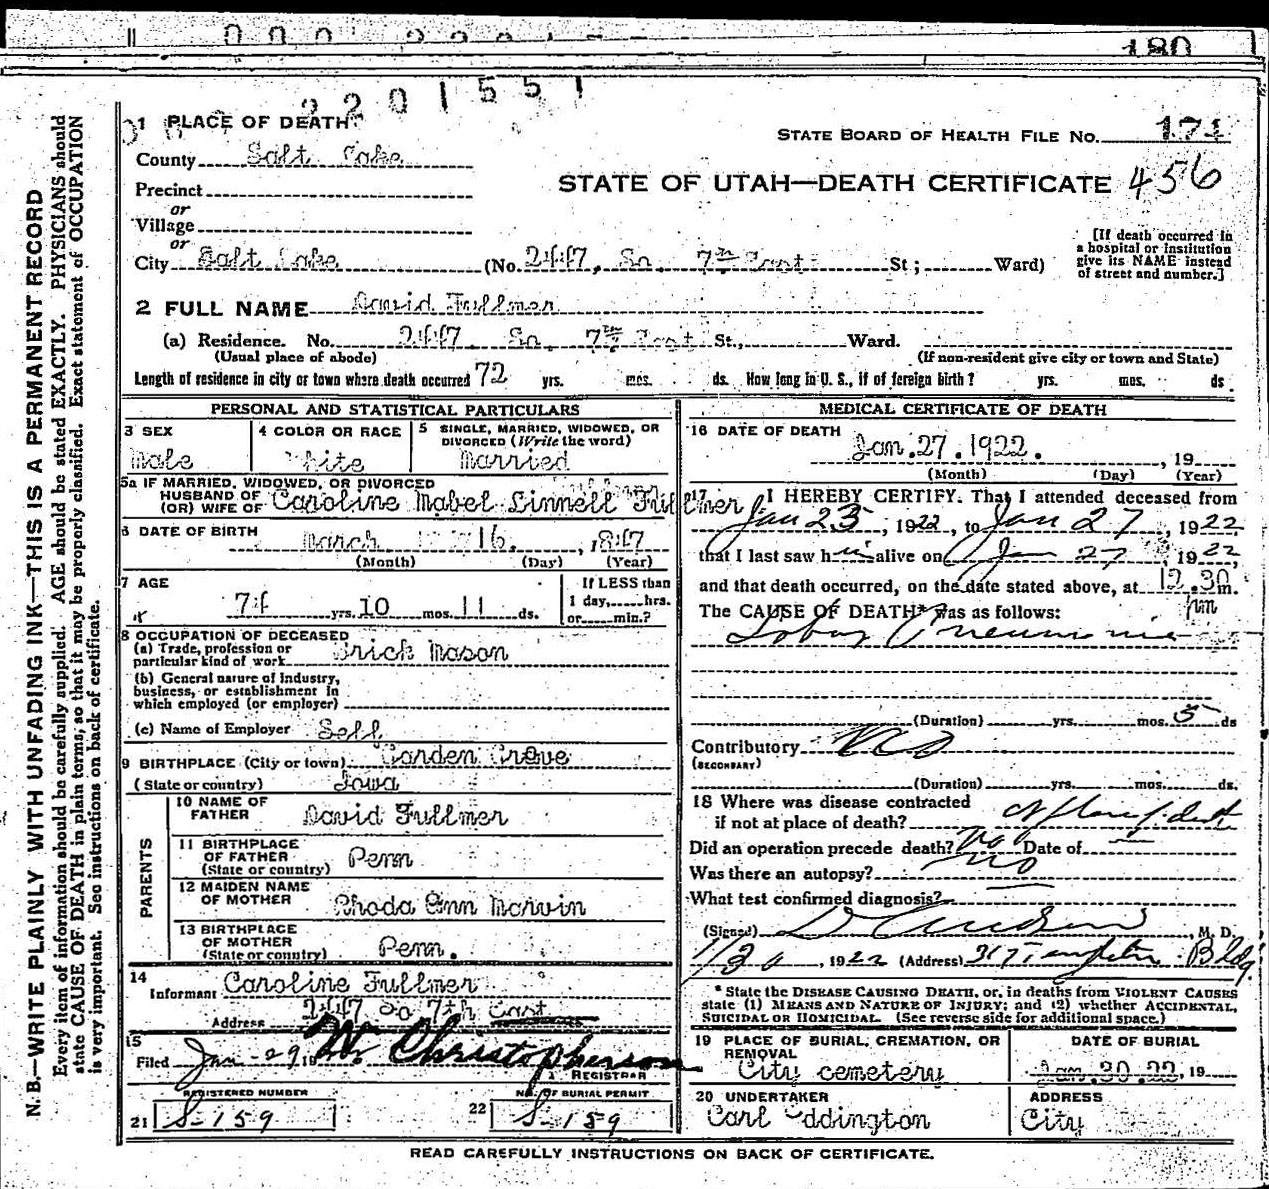 180
2201551
1 PLACE OF DEATH
STATE BOARD OF HEALTH FILE NO. 171
County Salt Lake
STATE OF UTAH—DEATH CERTIFICATE 456
Precinct
or
Village
or
[If death occurred in a hospital or institution give its NAME instead of street and number.]
City Salt Lake (No. 2447, So. 7th East St; Ward)
2 FULL NAME David Fullmer
(a) Residence. No. 2447 So. 7th East St., Ward.
(Usual place of abode) (If non-resident give city or town and State)
Length of residence in city or town where death occurred 72 yrs. mos. ds. How long in U. S., if of foreign birth? yrs. mos. ds.
PERSONAL AND STATISTICAL PARTICULARS
3 SEX
Male
4 COLOR OR RACE
White
5 SINGLE, MARRIED, WIDOWED, OR DIVORCED (Write the word)
Married
5a IF MARRIED, WIDOWED, OR DIVORCED
HUSBAND OF
(OR) WIFE OF Caroline Mabel Linnell Fullmer
6 DATE OF BIRTH March 16, 1847
(Month) (Day) (Year)
7 AGE
74 yrs. 10 mos. 11 ds.
If LESS than
1 day, hrs.
or min.?
8 OCCUPATION OF DECEASED
(a) Trade, profession or
particular kind of work Brick Mason
(b) General nature of industry,
business, or establishment in
which employed (or employer)
(c) Name of Employer Self
9 BIRTHPLACE (City or town) Garden Grove
(State or country) Iowa
PARENTS
10 NAME OF
FATHER David Fullmer
11 BIRTHPLACE
OF FATHER
(State or country) Penn
12 MAIDEN NAME
OF MOTHER Rhoda Ann Marvin
13 BIRTHPLACE
OF MOTHER
(State or country) Penn.
14
Informant Caroline Fullmer
Address 2447 So 7th East
15
Filed Jan-29, 19 W Christopherson
REGISTRAR
REGISTERED NUMBER
21 S-159
NO. OF BURIAL PERMIT
22 S-159
MEDICAL CERTIFICATE OF DEATH
16 DATE OF DEATH Jan. 27. 1922. , 19
(Month) (Day) (Year)
17 I HEREBY CERTIFY, That I attended deceased from
Jan 23, 1922, to Jan 27, 1922,
that I last saw him alive on Jan 27 1922,
and that death occurred, on the date stated above, at 12.30 m.
pm
The CAUSE OF DEATH* was as follows:
Lobar Pneumonia
(Duration) yrs. mos. 5 ds
Contributory No
(SECONDARY)
(Duration) yrs. mos. ds.
18 Where was disease contracted
if not at place of death? At place of death
Did an operation precede death? No Date of —
Was there an autopsy? No
What test confirmed diagnosis? —
(Signed) , M. D.
1/30, 1922 (Address) 317 Templeton Bldg.
* State the DISEASE CAUSING DEATH, or, in deaths from VIOLENT CAUSES
state (1) MEANS AND NATURE OF INJURY; and (2) whether ACCIDENTAL,
SUICIDAL OR HOMICIDAL. (See reverse side for additional space.)
19 PLACE OF BURIAL, CREMATION, OR
REMOVAL
City cemetery
DATE OF BURIAL
Jan. 30. 22, 19
20 UNDERTAKER
Carl Eddington
ADDRESS
City
READ CAREFULLY INSTRUCTIONS ON BACK OF CERTIFICATE.
N. B.—WRITE PLAINLY WITH UNFADING INK—THIS IS A PERMANENT RECORD
Every item of information should be carefully supplied. AGE should be stated EXACTLY. PHYSICIANS should
state CAUSE OF DEATH in plain terms, so that it may be properly classified. Exact statement of OCCUPATION
is very important. See instructions on back of certificate.